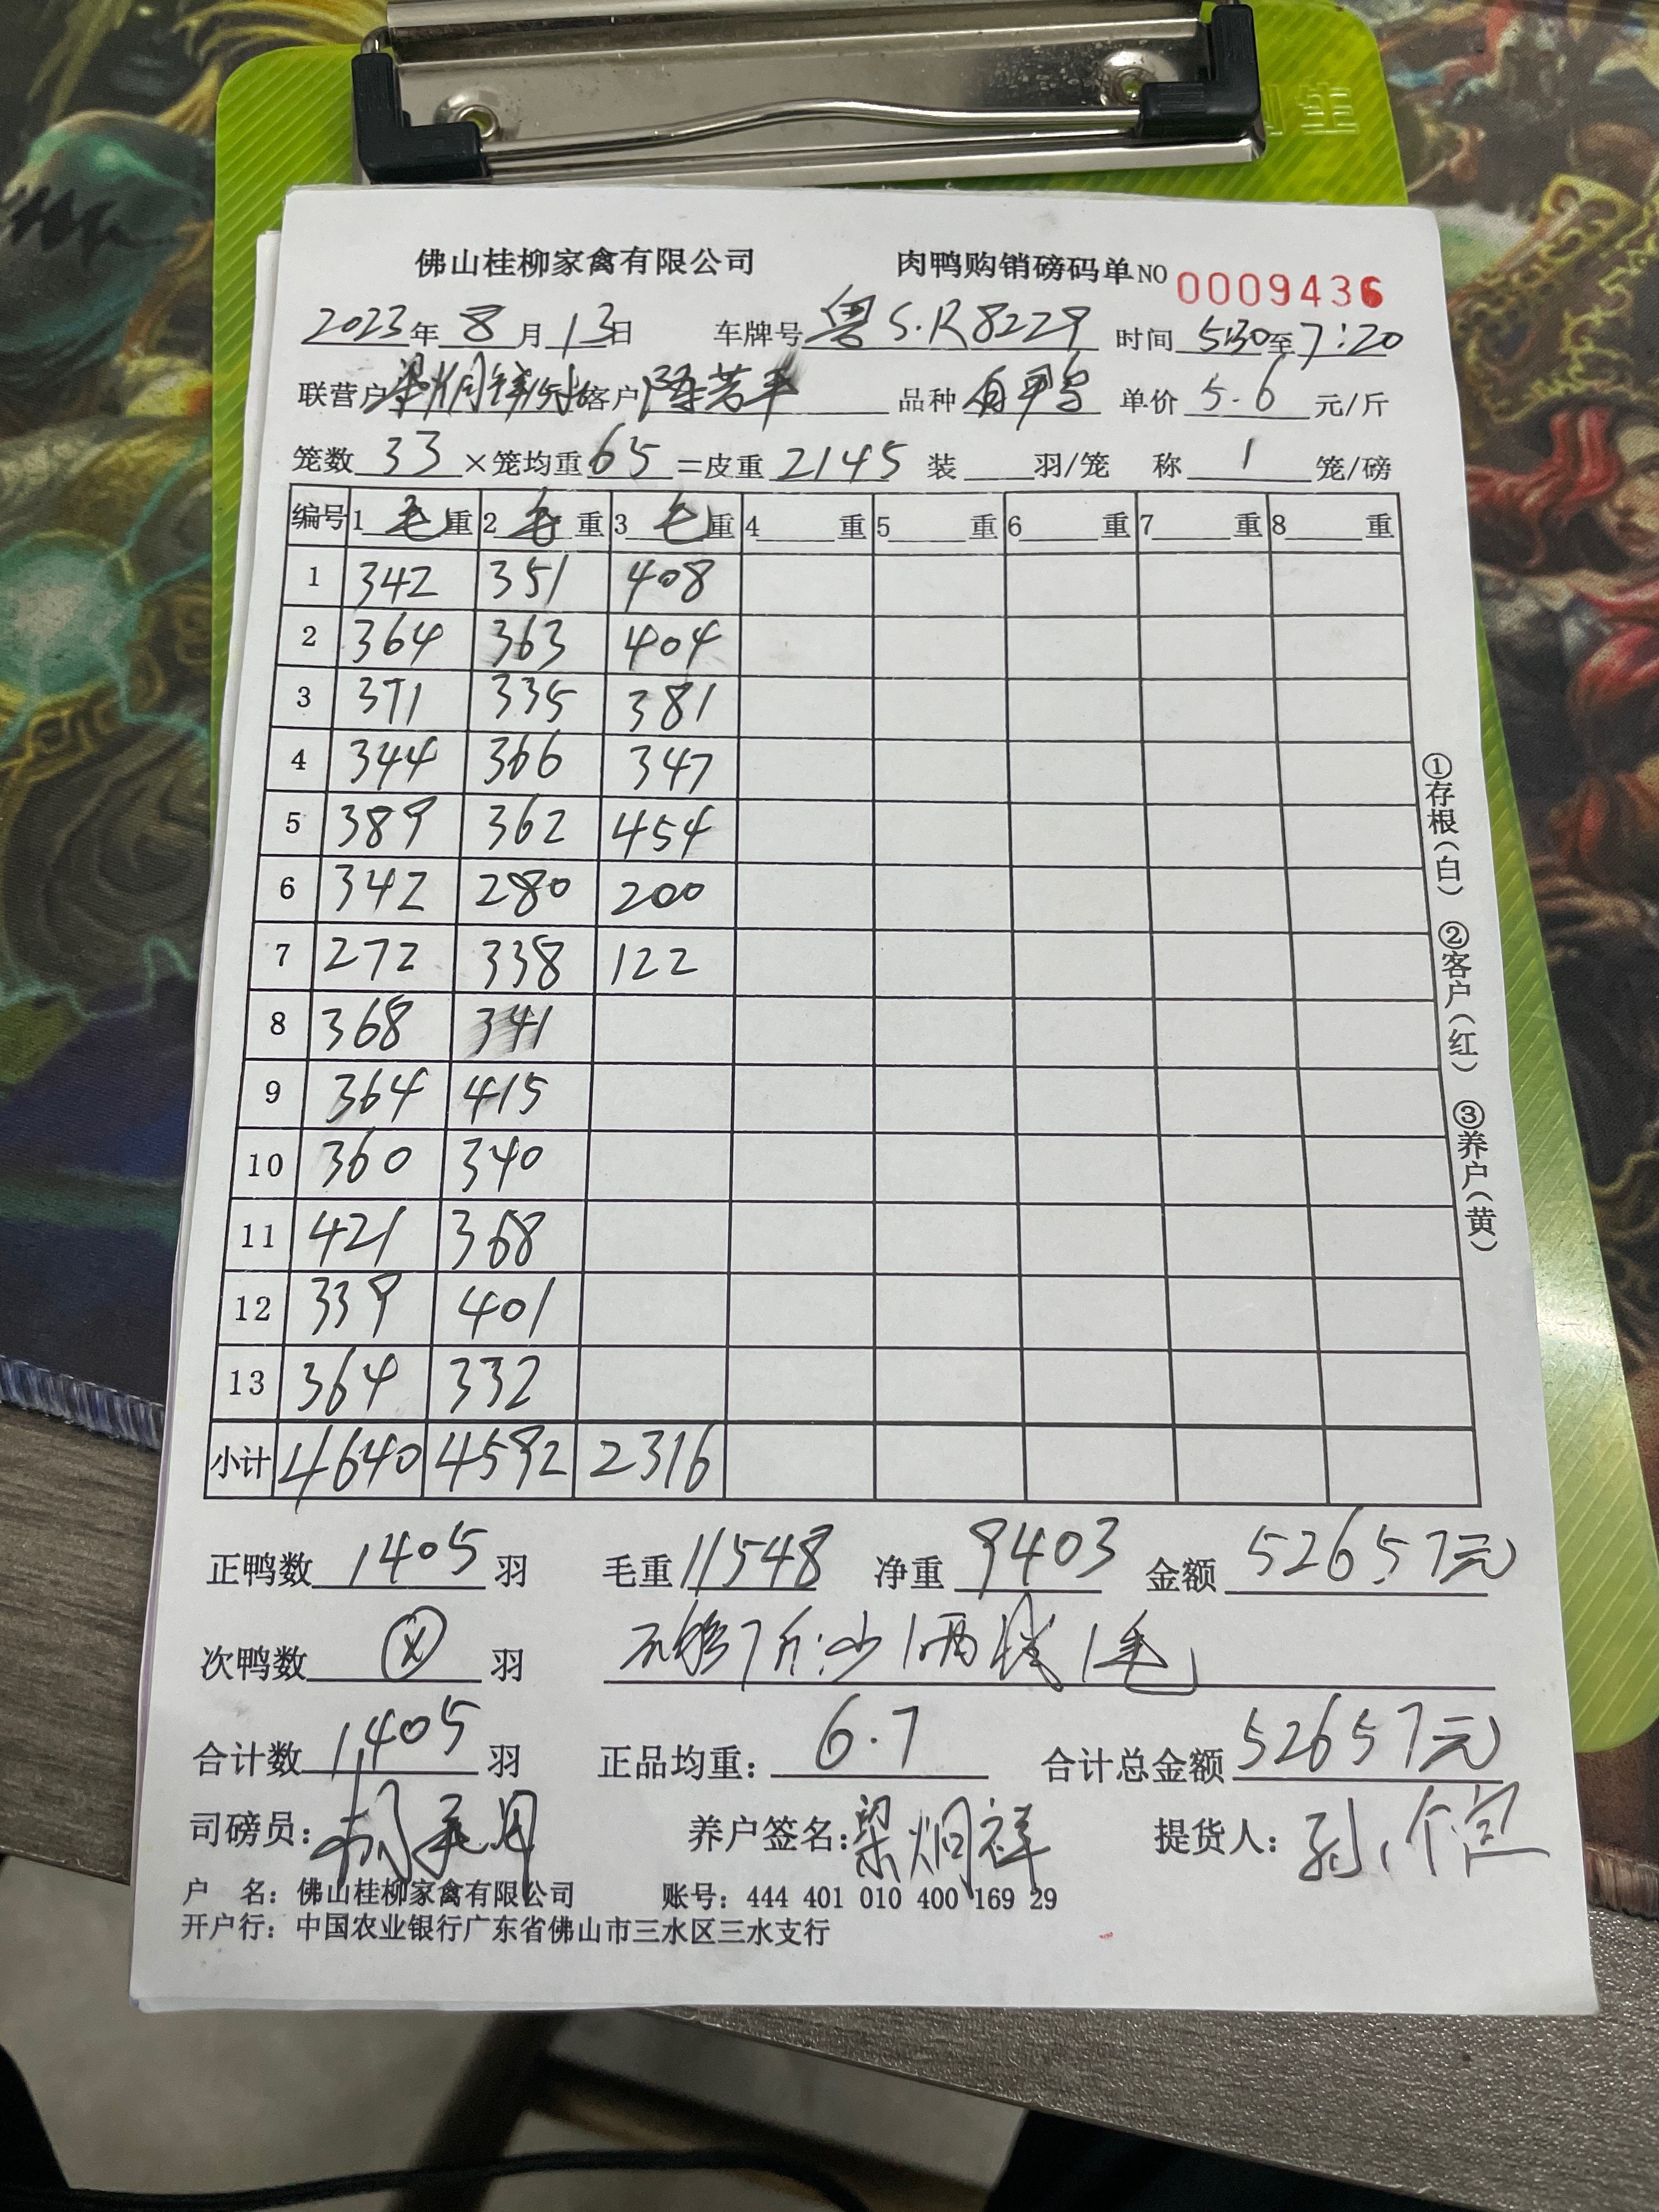 佛山桂柳家禽有限公司 肉鸭购销磅码单 NO 0009436
2023年 8月 13日 车牌号 粤S.R8229 时间 5:30至7:20
联营户 梁炯祥 客户 陈芳平 品种 单价 5.6 元/斤
笼数 33 ×笼均重 65 =皮重 2145 装 羽/笼 称 1 笼/磅
编号 1 毛 重 2 毛 重 3 毛 重 4 重 5 重 6 重 7 重 8 重
1 342 351 408
2 364 363 404
3 371 335 381
4 344 366 347
5 389 362 454
6 342 280 200
7 272 338 122
8 368 341
9 364 415
10 360 340
11 421 368
12 339 401
13 364 332
小计 4640 4592 2316
①存根(白) ②客户(红) ③养户(黄)
正鸭数 1405 羽 毛重 11548 净重 9403 金额 52657元
次鸭数 羽 不够7斤:少1两减1毛
合计数 1405 羽 正品均重: 6.7 合计总金额 52657元
司磅员: 养户签名: 梁炯祥 提货人:
户 名: 佛山桂柳家禽有限公司 账号: 444 401 010 400 169 29
开户行: 中国农业银行广东省佛山市三水区三水支行